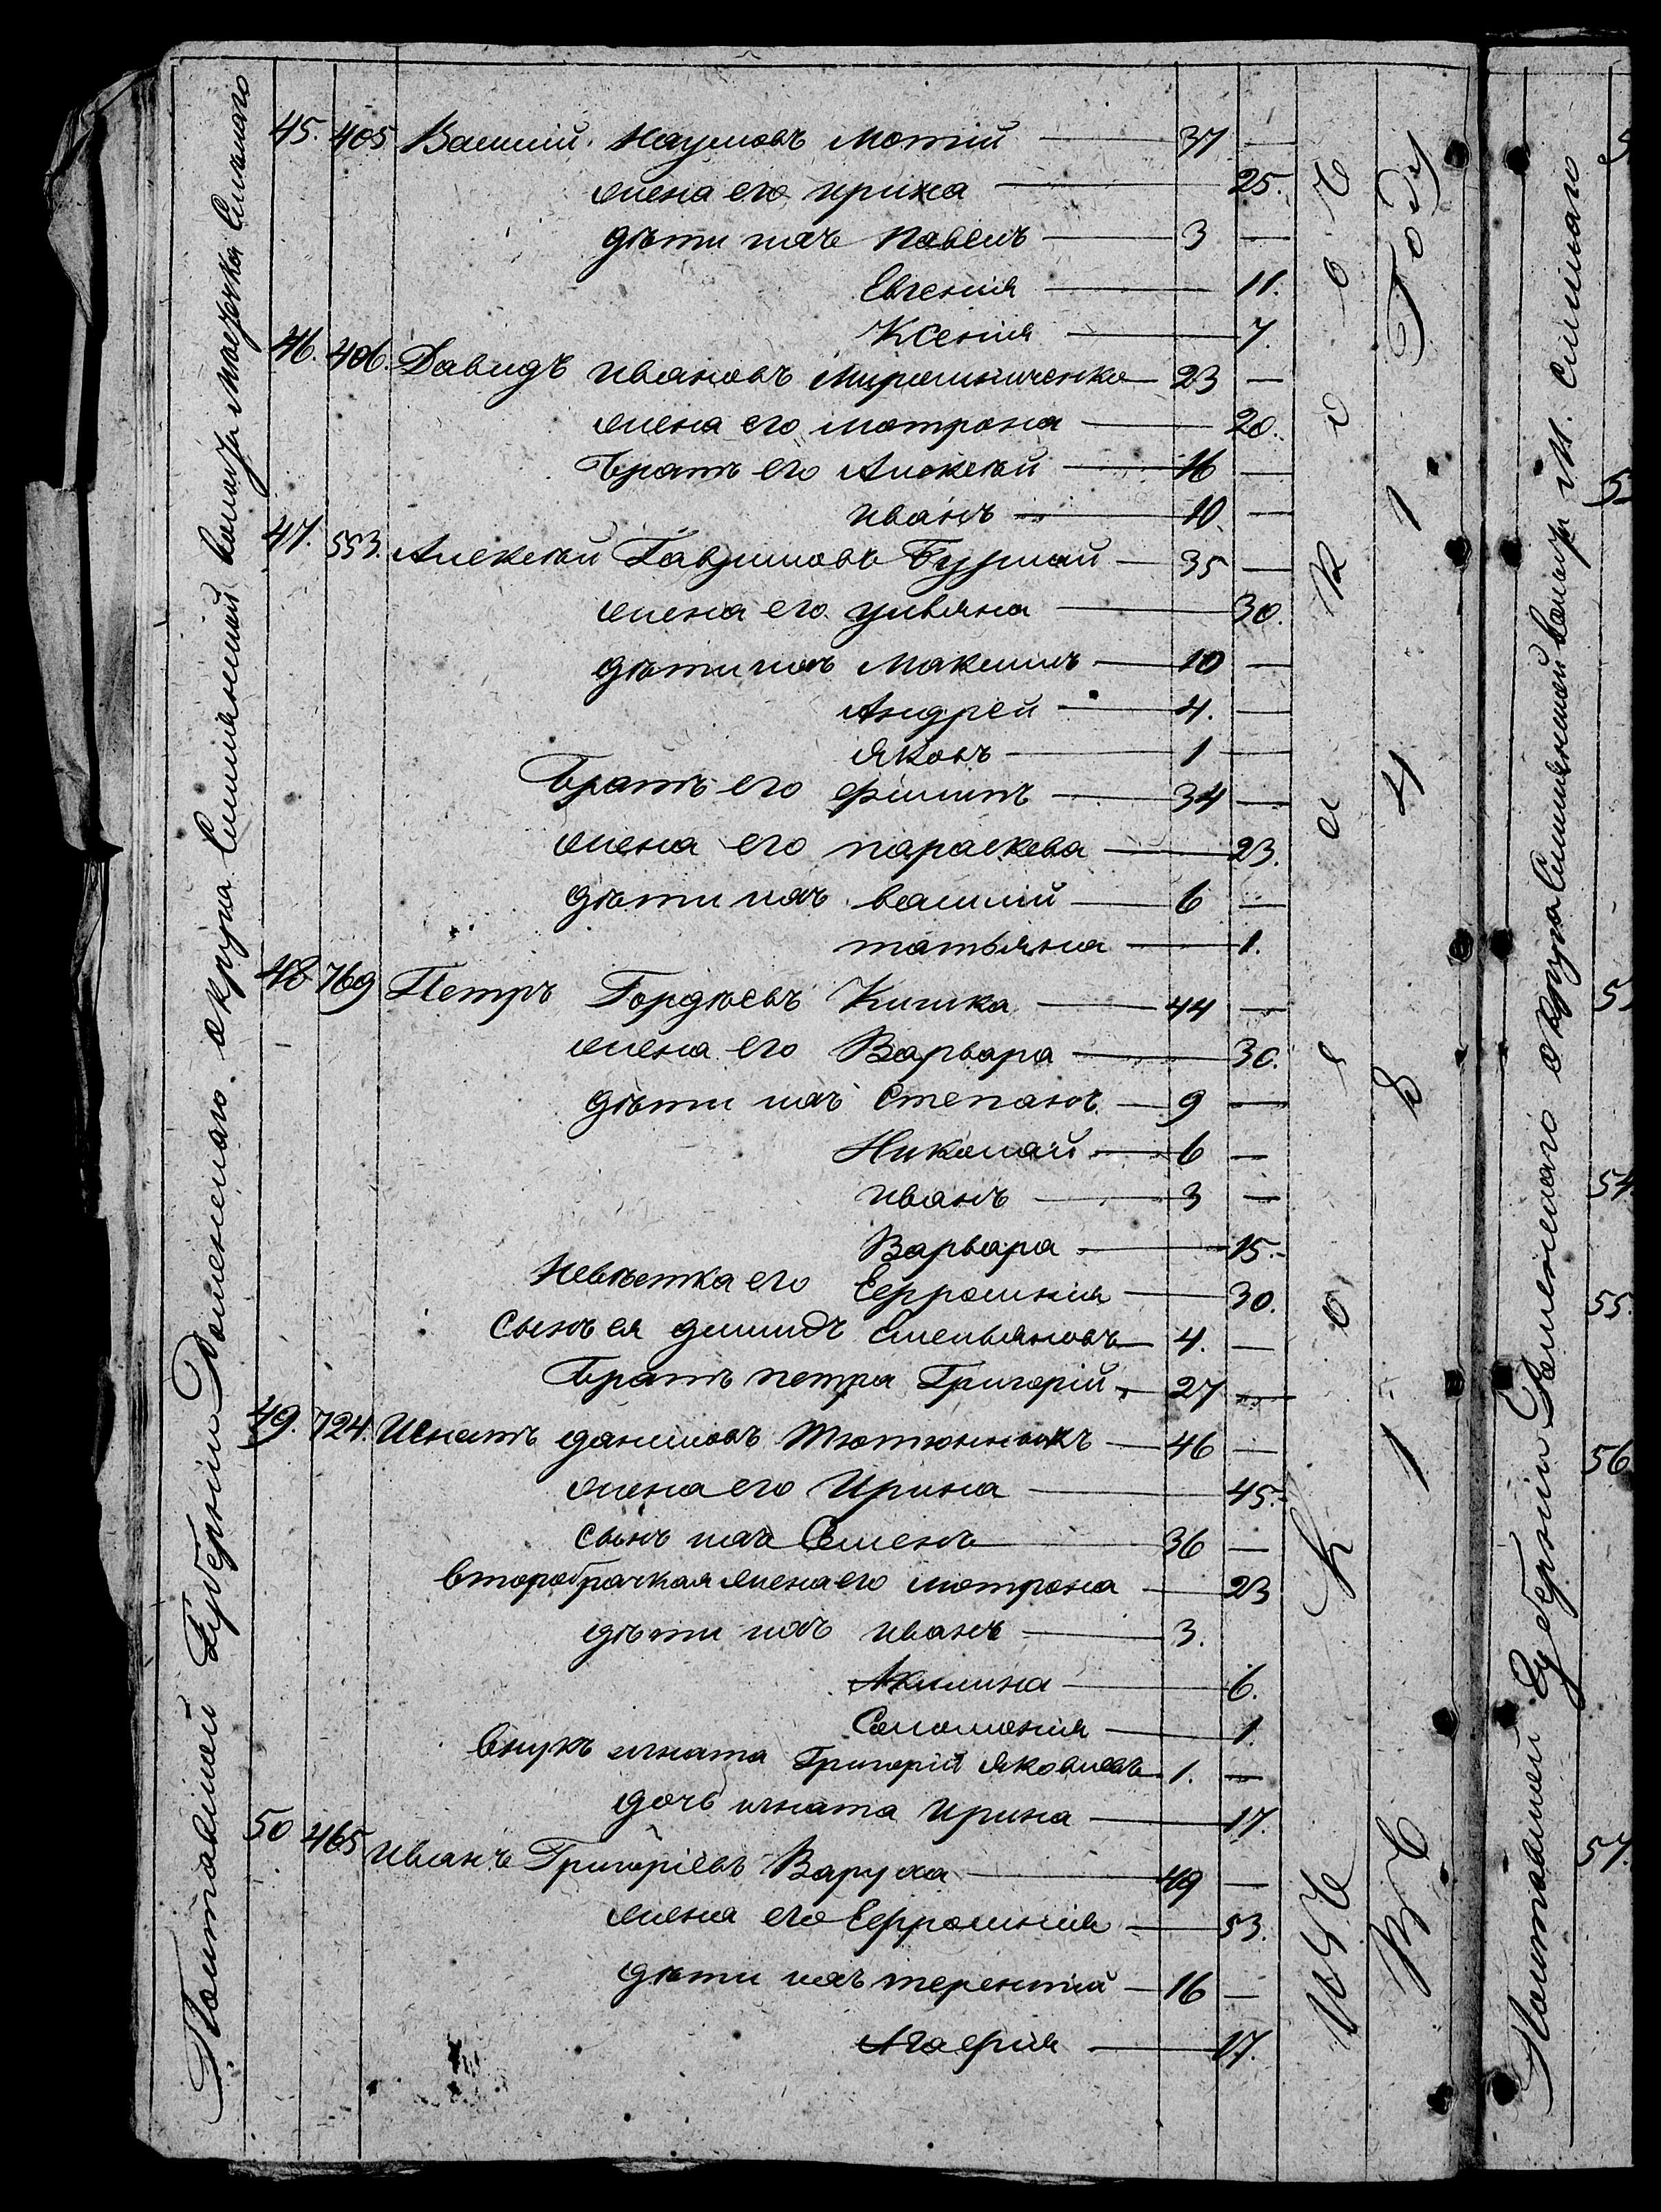 Полтавской Губерніи Роменскаго округа Смѣлянской волости Мѣстечка Смѣлаго
45. 405 Василій Наумовъ Мотій — 37 —
жена его ирина — 25.
дѣти ихъ павелъ — 3 —
Евгенія — 11.
Ксенія — 7.
46. 406. Давидъ ивановъ Мирошниченко — 23 —
жена его мотрона — 20.
Братъ его Алексѣй — 16 —
иванъ — 10. —
47. 553. Алексѣй Гавриловъ — 35 —
жена его ульяна — 30.
дѣти ихъ Максимъ — 10 —
Андрей — 4. —
яковъ — 1 —
Братъ его филипъ — 34 —
жена его параскева — 23.
дѣти ихъ василій — 6 —
татьяна — 1.
48 769 Петръ Гордѣевъ Кишка — 44 —
жена его Варвара — 30.
дѣти ихъ Степанъ — 9 —
Николай — 6 —
иванъ — 3 —
Варвара — 15.
Невѣстка его Ефросинія — 30.
сынъ ея Емельяновъ — 4. —
Братъ петра Григорій — 27 —
49. 724. Игнатъ даниловъ Тютюнникъ — 46 —
жена его Ирина — 45.
сынъ ихъ Семенъ — 36 —
второбрачная жена его мотрона — 23
дѣти ихъ иванъ — 3.
Акилина — 6.
Соломонія — 1.
внукъ игната Григорій яковлевъ — 1. —
дочь игната ирина — 17.
50 465 иванъ Григорьевъ Варуха — 49 —
жена его Ефросинія — 53.
дѣти ихъ терентій — 16 —
Агафія — 17.
1 8 4 1 Году
Полтавской Губерніи Роменскаго округа Смѣлянской волости М. Смѣлаго
54.
55.
56
57.